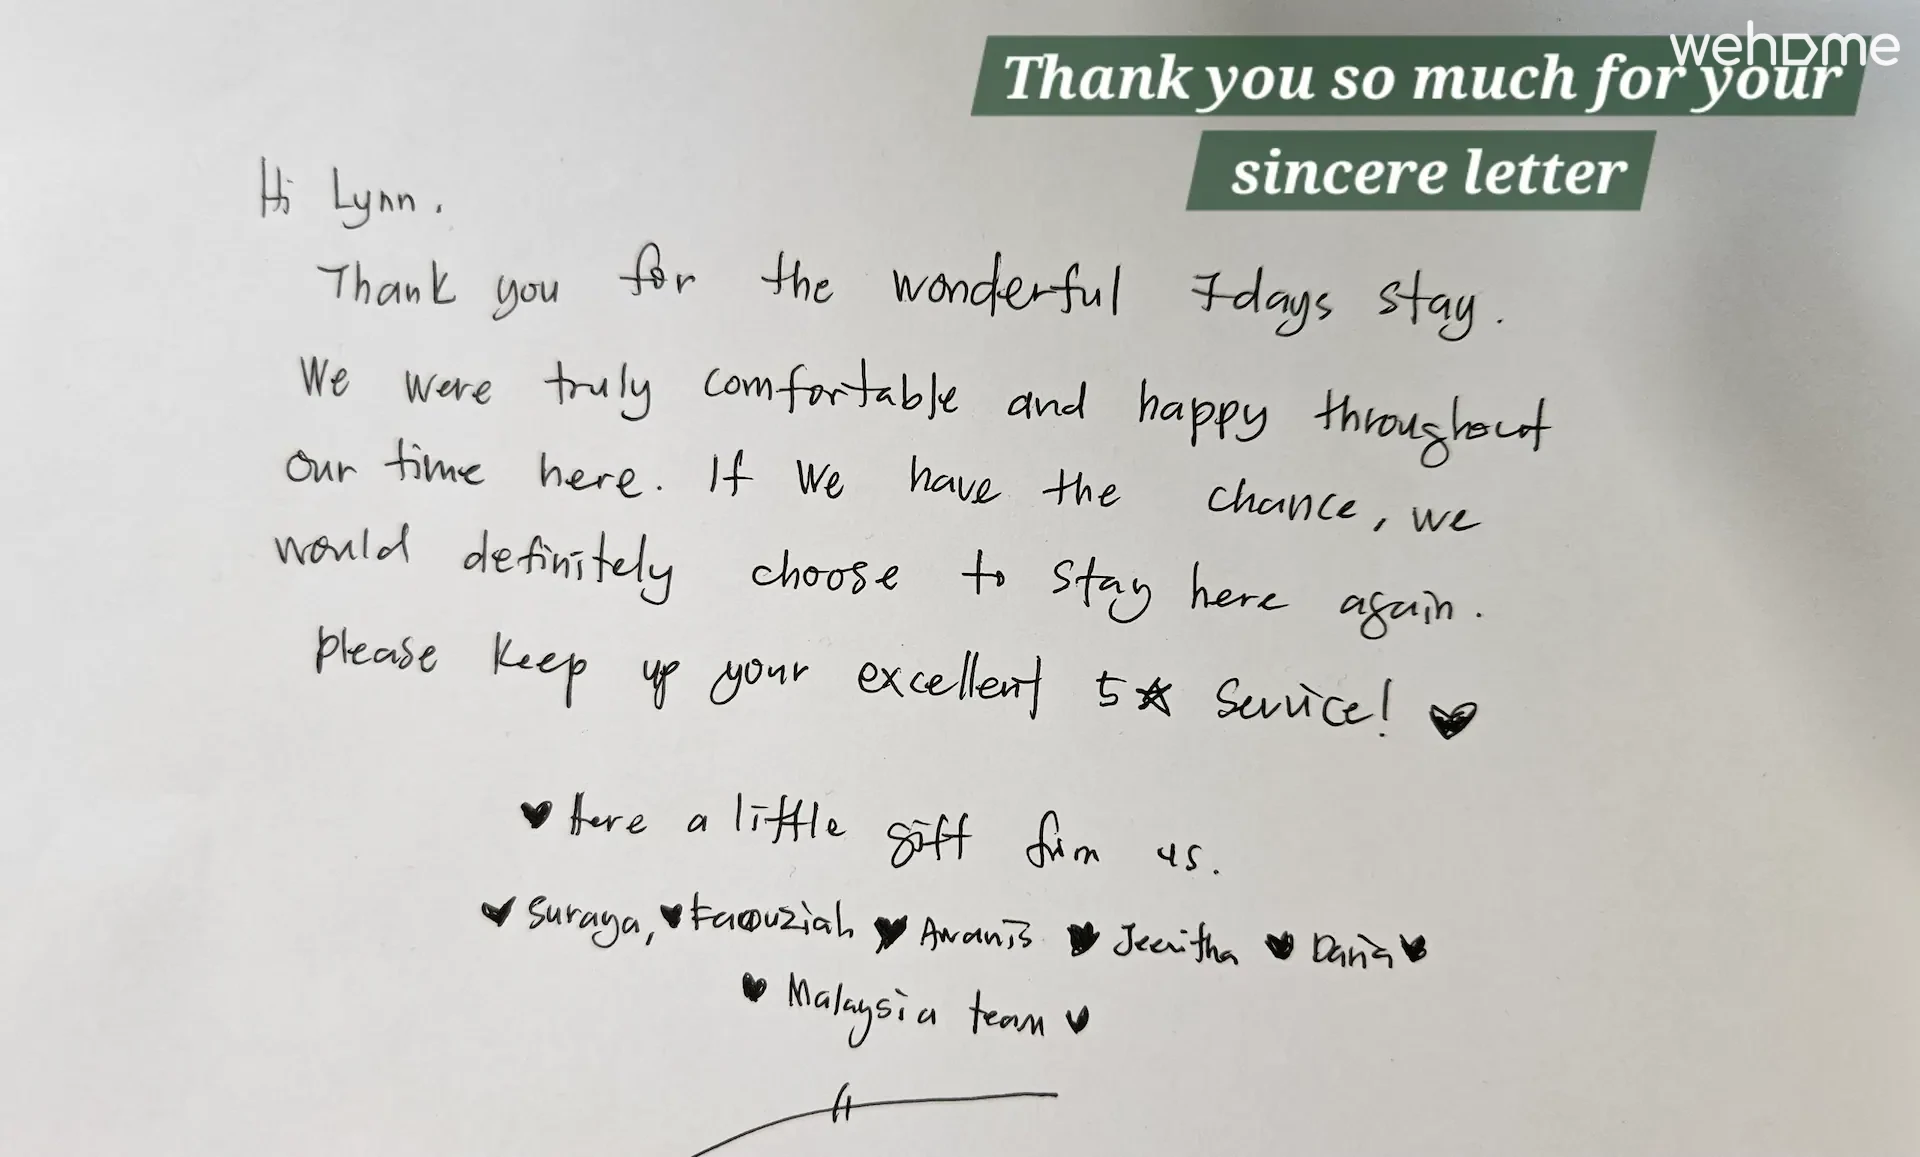 wehome
Thank you so much for your
sincere letter
Hi Lynn.
Thank you for the wonderful 7days stay.
We were truly comfortable and happy throughout
our time here. If We have the chance, we
would definitely choose to stay here again.
please keep up your excellent 5☆ Service! ♥
♥ Here a little gift from us.
♥ Suraya, ♥ ♥ ♥ ♥ Dania ♥
♥ Malaysia team ♥